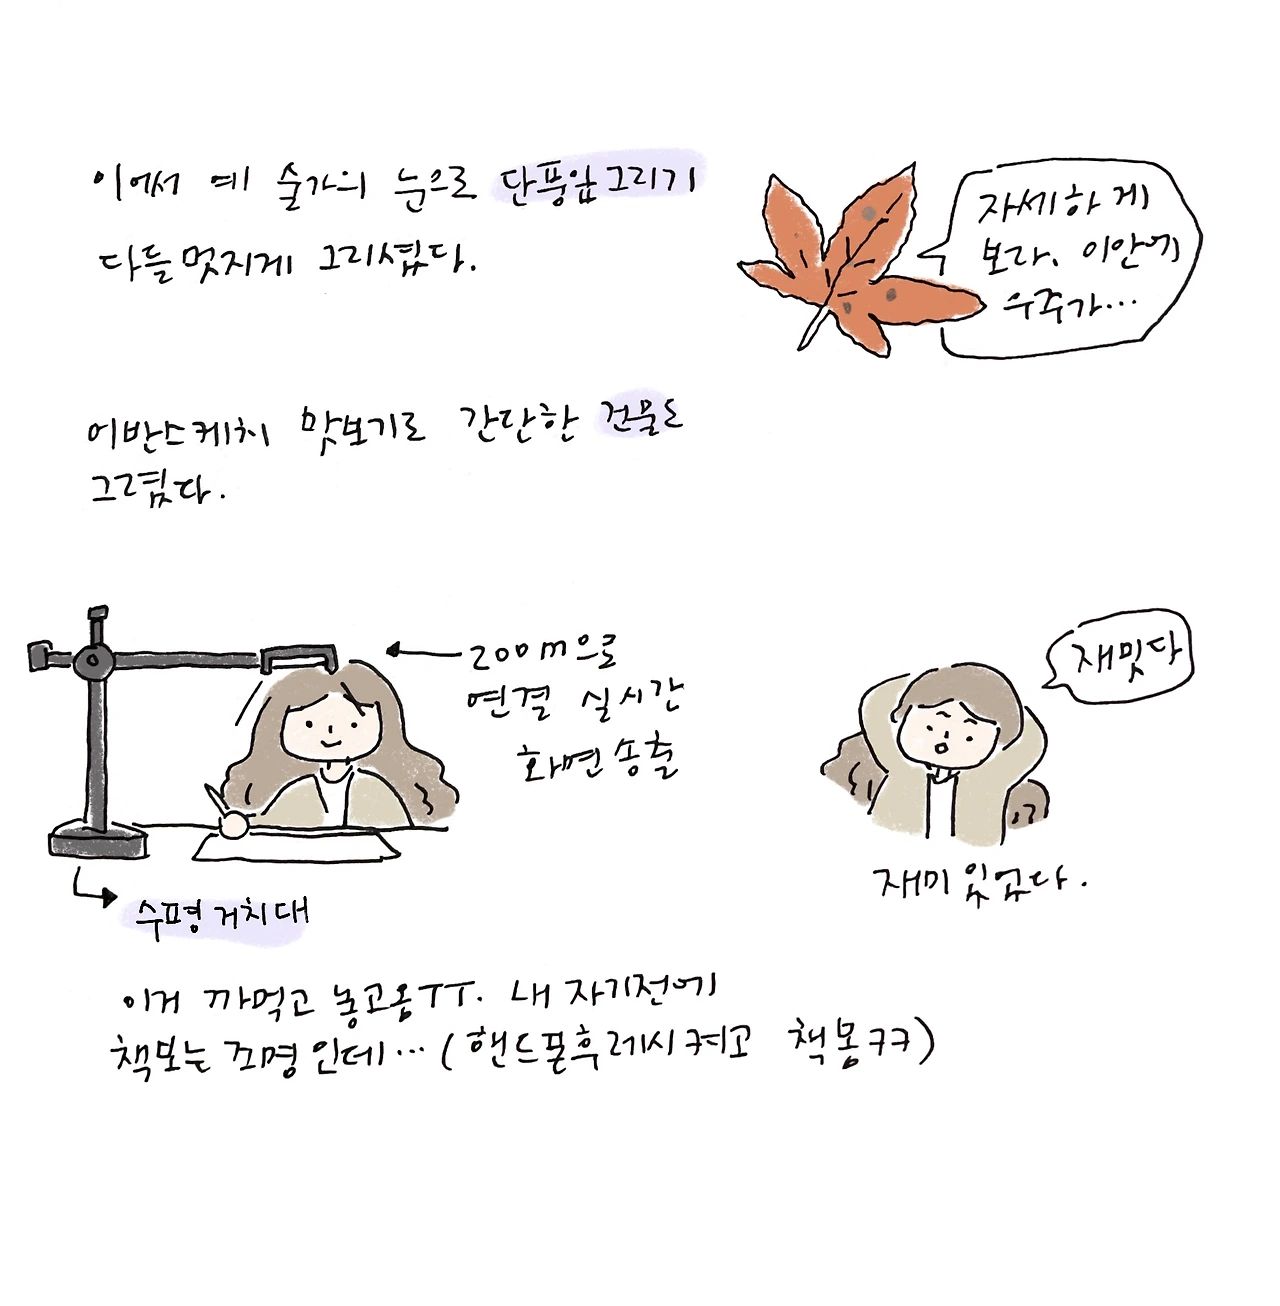 이어서 예술가의 눈으로 단풍잎그리기
다들 멋지게 그리셨다.
자세하게
보라. 이안에
우주가...
어반스케치 맛보기로 간단한 건물도
그렸다.
200m으로
연결 실시간
화면송출
재밌다
수평거치대
재미있었다.
이거 까먹고 놓고옴ㅜㅜ. 내 자기전에
책보는 조명인데...(핸드폰후레시켜고 책봄ㅋㅋ)